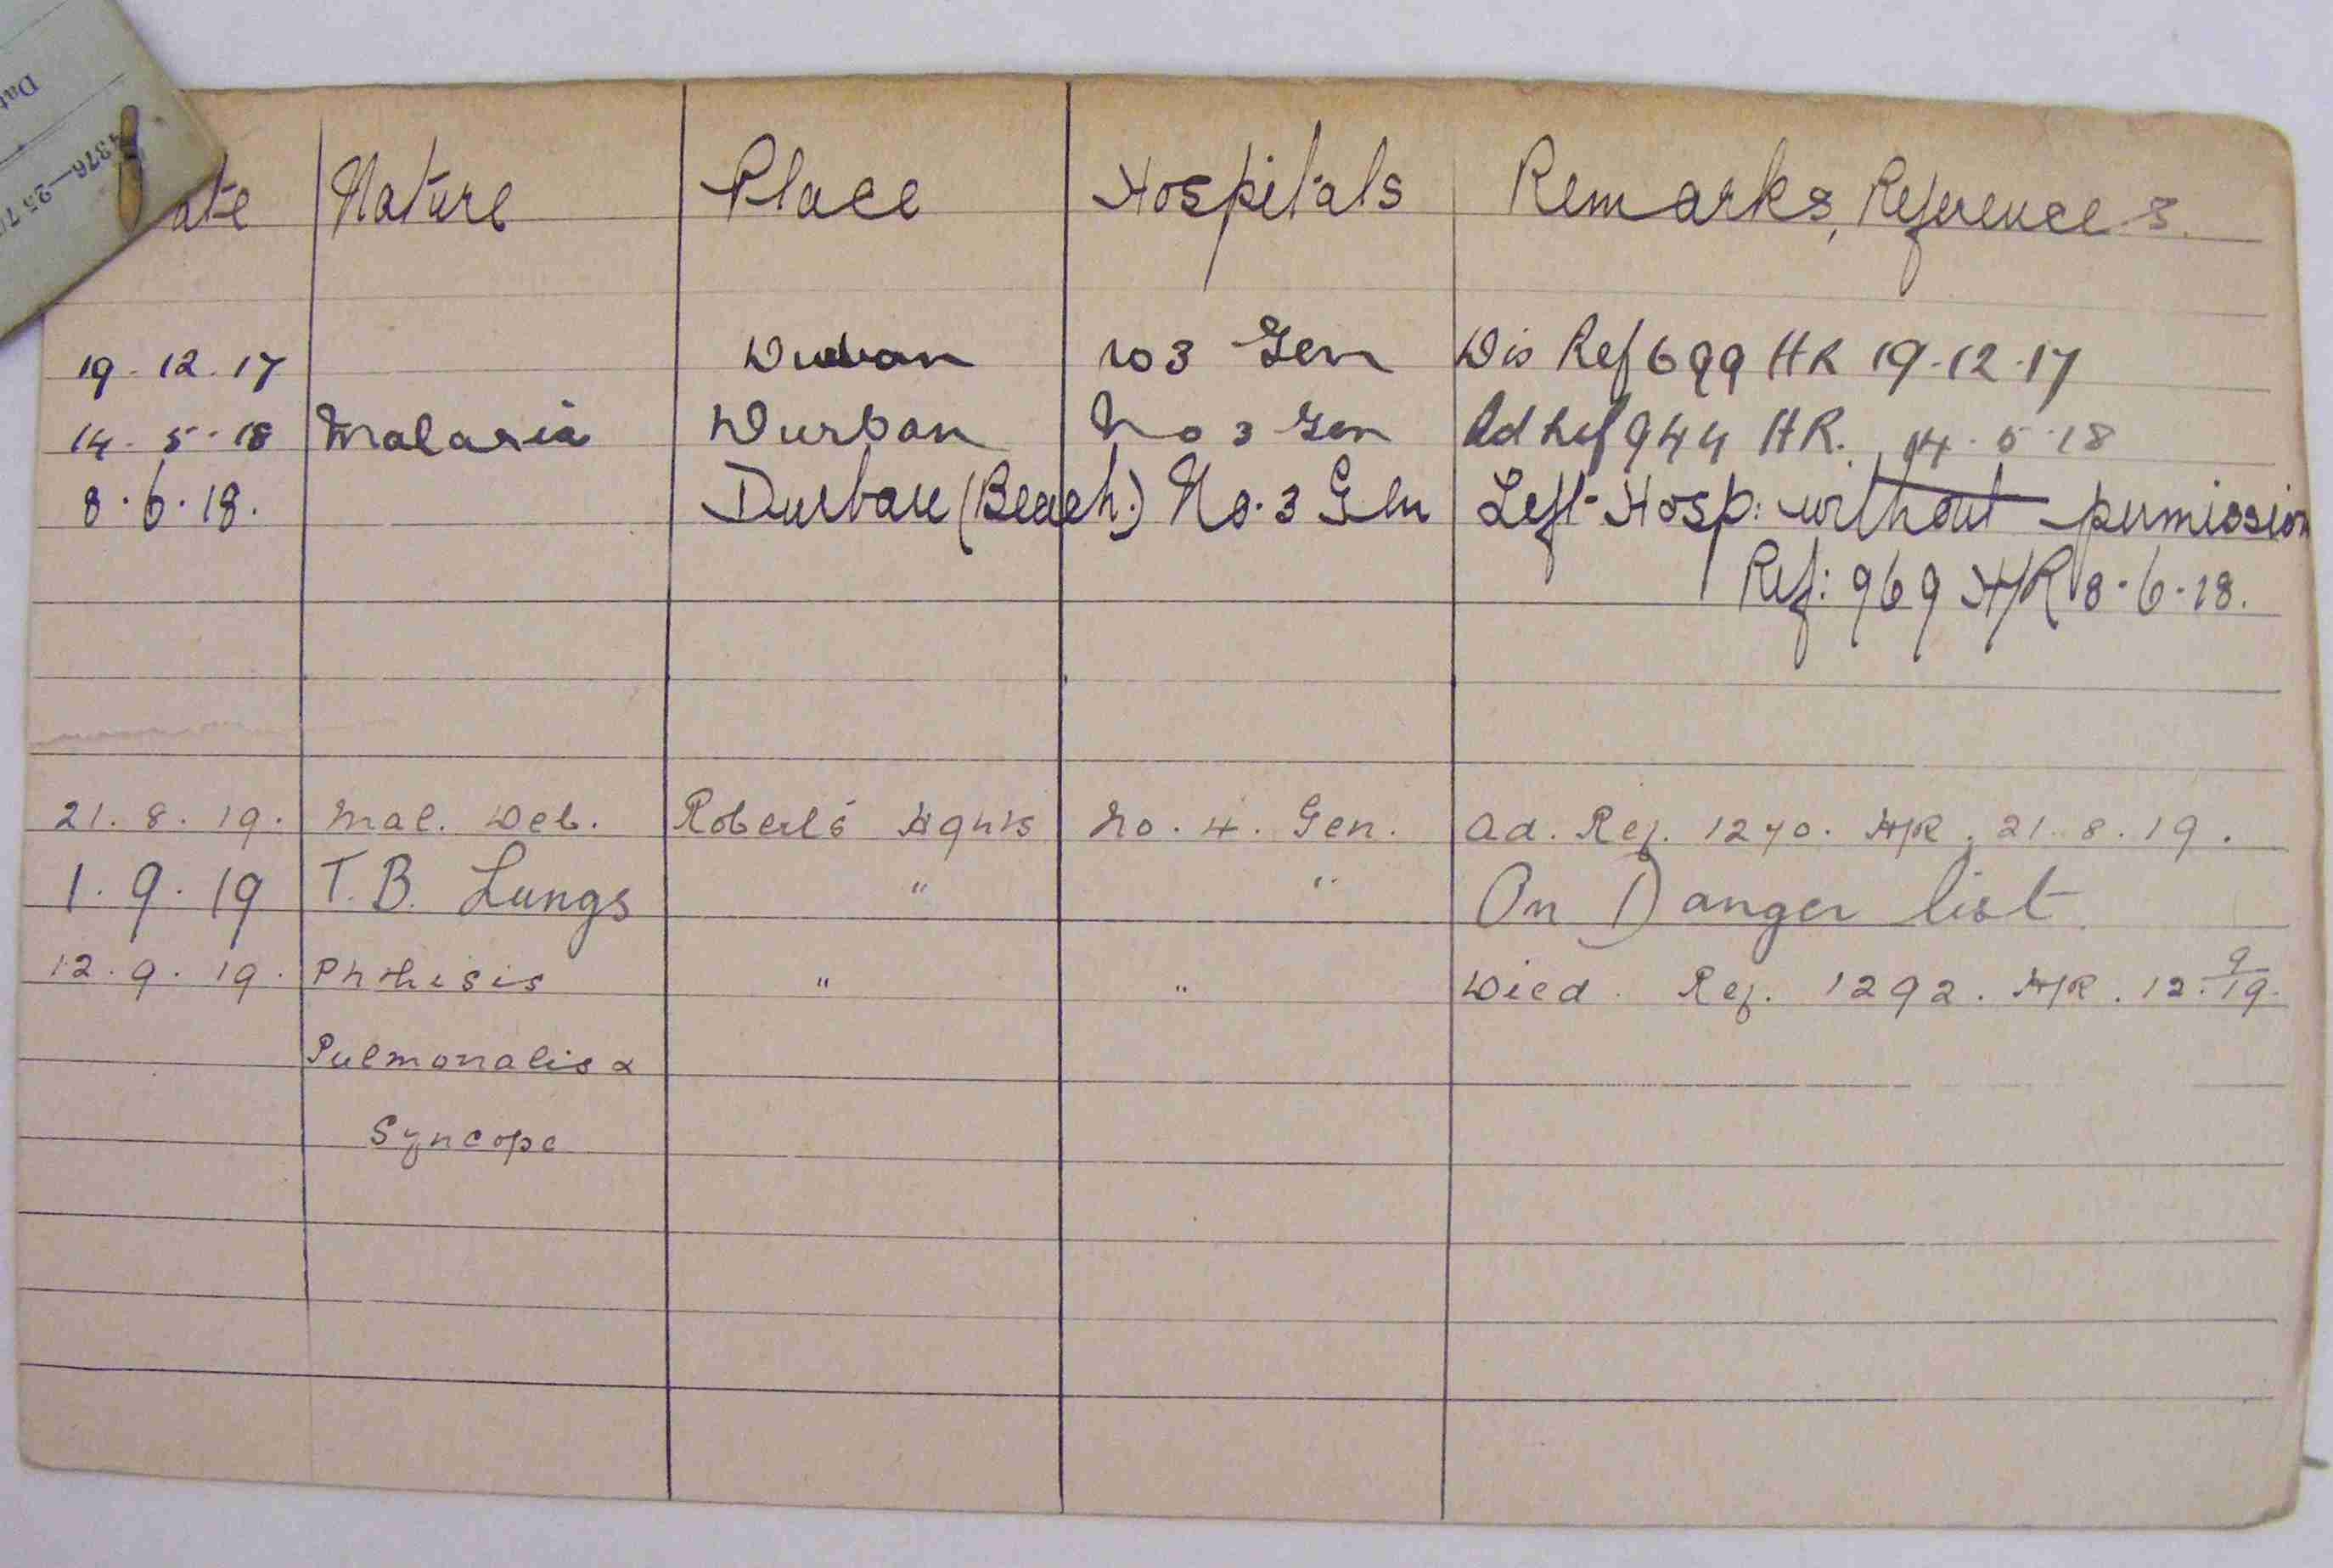 Dat
4376—257
ate Nature Place Hospitals Remarks, References.
19.12.17 Durban No 3 Gen Dis Ref 699 HR 19-12-17
14.5.18 Malaria Durban No 3 Gen Ad Ref 944 HR. 14.5.18
8.6.18. Durban (Beach.) No. 3 Gen Left Hosp: without permission
Ref: 969 H/R 8.6.18.
21.8.19. Mal. Deb. Robert's Hghts No. 4. Gen. Ad. Ref. 1270. H/R. 21.8.19.
1.9.19 T.B. Lungs " " On Danger list.
12.9.19. Phthisis " " Died. Ref. 1292. H/R. 12.9/19.
Pulmonalis &
Syncope